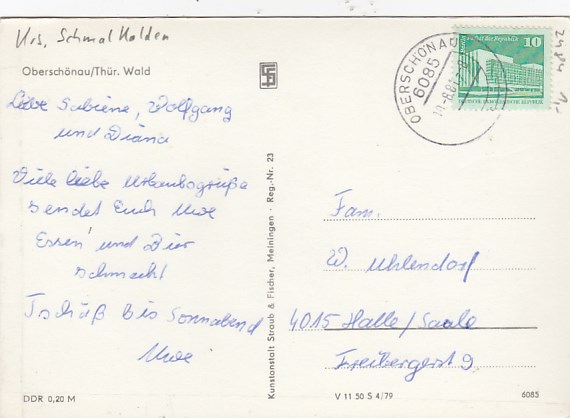 Krs. Schmalkalden
Oberschönau/Thür. Wald
Liebe Sabiene, Wolfgang
und Diana
Viele liebe Urlaubsgrüße
sendet Euch Uwe
Essen und Bier
schmeckt
Tschüß bis Sonnabend
Uwe
DDR 0,20 M
Kunstanstalt Straub & Fischer, Meiningen · Reg.-Nr. 23
OBERSCHÖNAU
6085
10
DEUTSCHE DEMOKRATISCHE REPUBLIK
2484 1,-
Fam.
W. Uhlendorf
4015 Halle/Saale
Freibergerst 9
V 11 50 S 4/79
6085